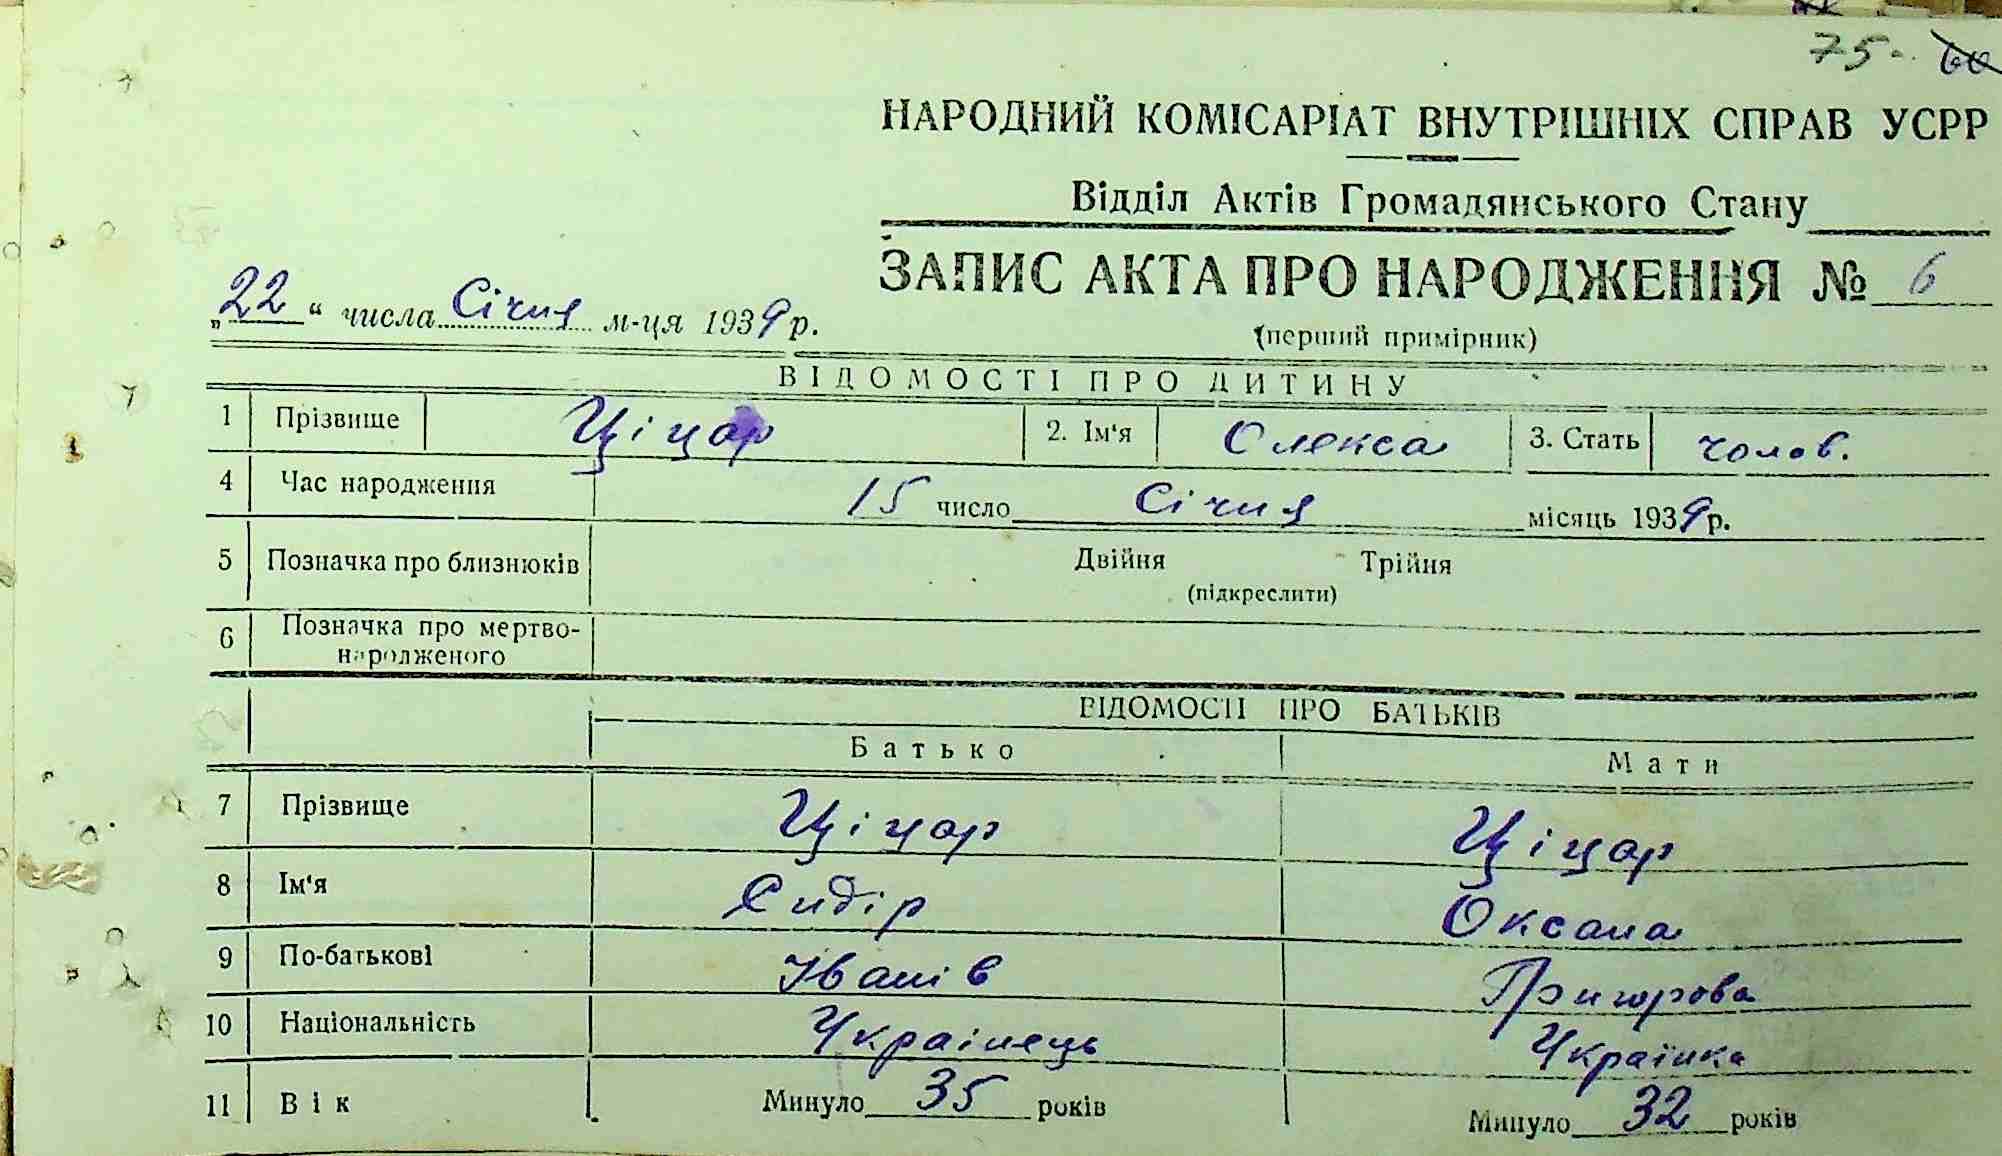 75
НАРОДНИЙ КОМІСАРІАТ ВНУТРІШНІХ СПРАВ УСРР
Відділ Актів Громадянського Стану
ЗАПИС АКТА ПРО НАРОДЖЕННЯ № 6
„22“ числа Січня м-ця 1939 р.
(перший примірник)
ВІДОМОСТІ ПРО ДИТИНУ
1 Прізвище Ціцар 2. Ім'я Олекса 3. Стать чолов.
4 Час народження 15 число Січня місяць 1939 р.
5 Позначка про близнюків Двійня Трійня
(підкреслити)
6 Позначка про мертво-
народженого
ВІДОМОСТІ ПРО БАТЬКІВ
Батько Мати
7 Прізвище Ціцар Ціцар
8 Ім'я Сидір Оксана
9 По-батькові Іванів Григорова
10 Національність Українець Українка
11 Вік Минуло 35 років Минуло 32 років